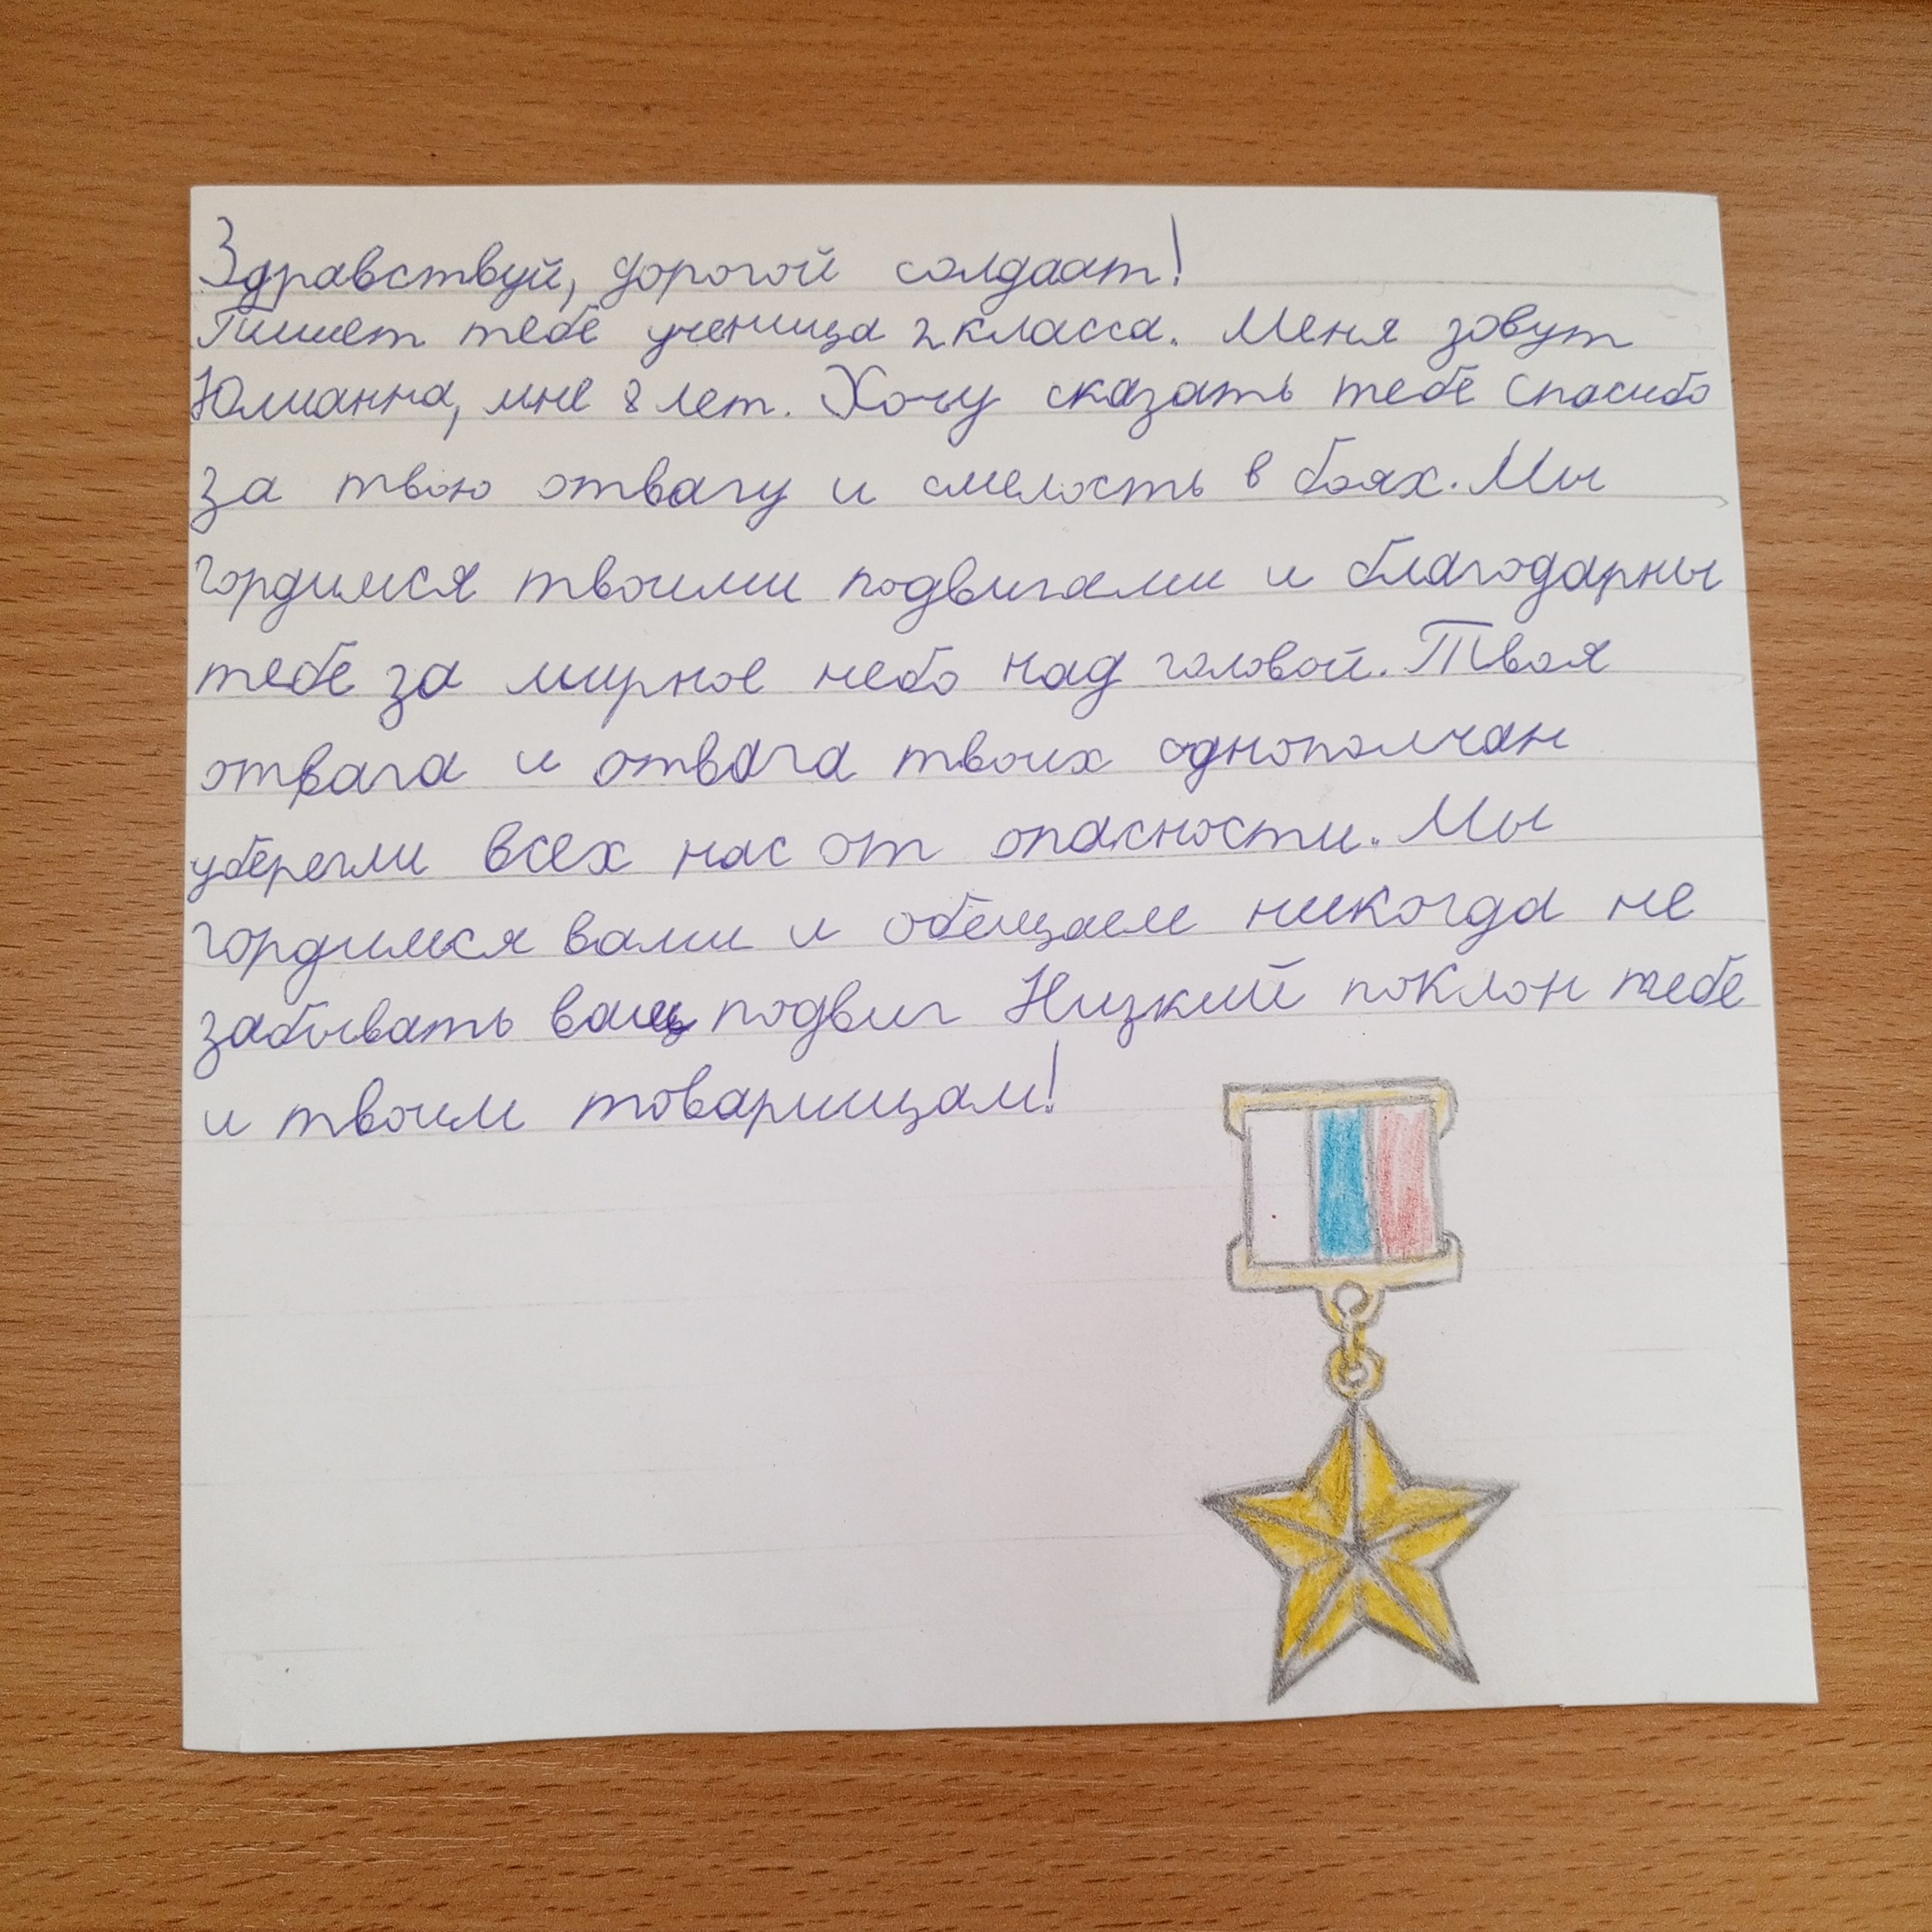 Здравствуй, дорогой солдаат!
Пишет тебе ученица 2 класса. Меня зовут
Юлианна, мне 8 лет. Хочу сказать тебе спасибо
за твою отвагу и смелость в боях. Мы
гордимся твоими подвигами и благодарны
тебе за мирное небо над головой. Твоя
отвага и отвага твоих однополчан
уберегли всех нас от опасности. Мы
гордимся вами и обещаем никогда не
забывать ваш подвиг Низкий поклон тебе
и твоим товарищам!